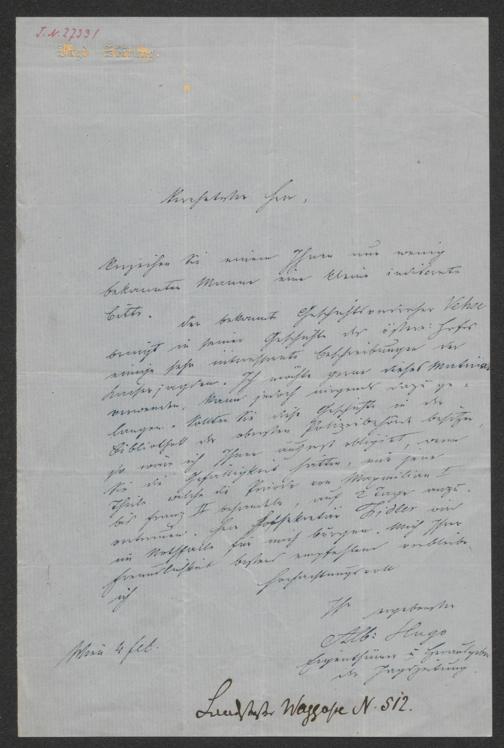 J.N. 27331
Verehrtester Herr,
Verzeihen Sie einem Ihnen nur wenig
bekannten Manne eine kleine indiscrete
Bitte.
Der bekannte Geschichtsforscher Vehse
bringt in seiner Geschichte des österr: Hofes
einige sehr interessante Beschreibungen der
Kaiserjagden. Ich möchte gerne dieses Material
verwenden, kann jedoch nirgends dazu ge-
langen. Sollten Sie diese Geschichte in der
Bibliothek der obersten Polizeibehörde besitzen,
so wäre ich Ihnen äußerst obligirt, wenn
Sie die Gefälligkeit hätten, mir jene
Theile welche die Periode von Maximilian I
bis Franz II behandeln, auf Tage anzu-
vertrauen. Herr Hofsekretär wird
im Nothfalle für mich bürgen. Mich Ihrer
Freundlichkeit bestens empfehlend verbleibe
ich
Hochachtungsvoll
Ihr ergebenster
Alb: Hugo
Eigenthümer u Herausgeber
der Jagdzeitung.
Wien 4 Feb.
Landstraße N. 512.